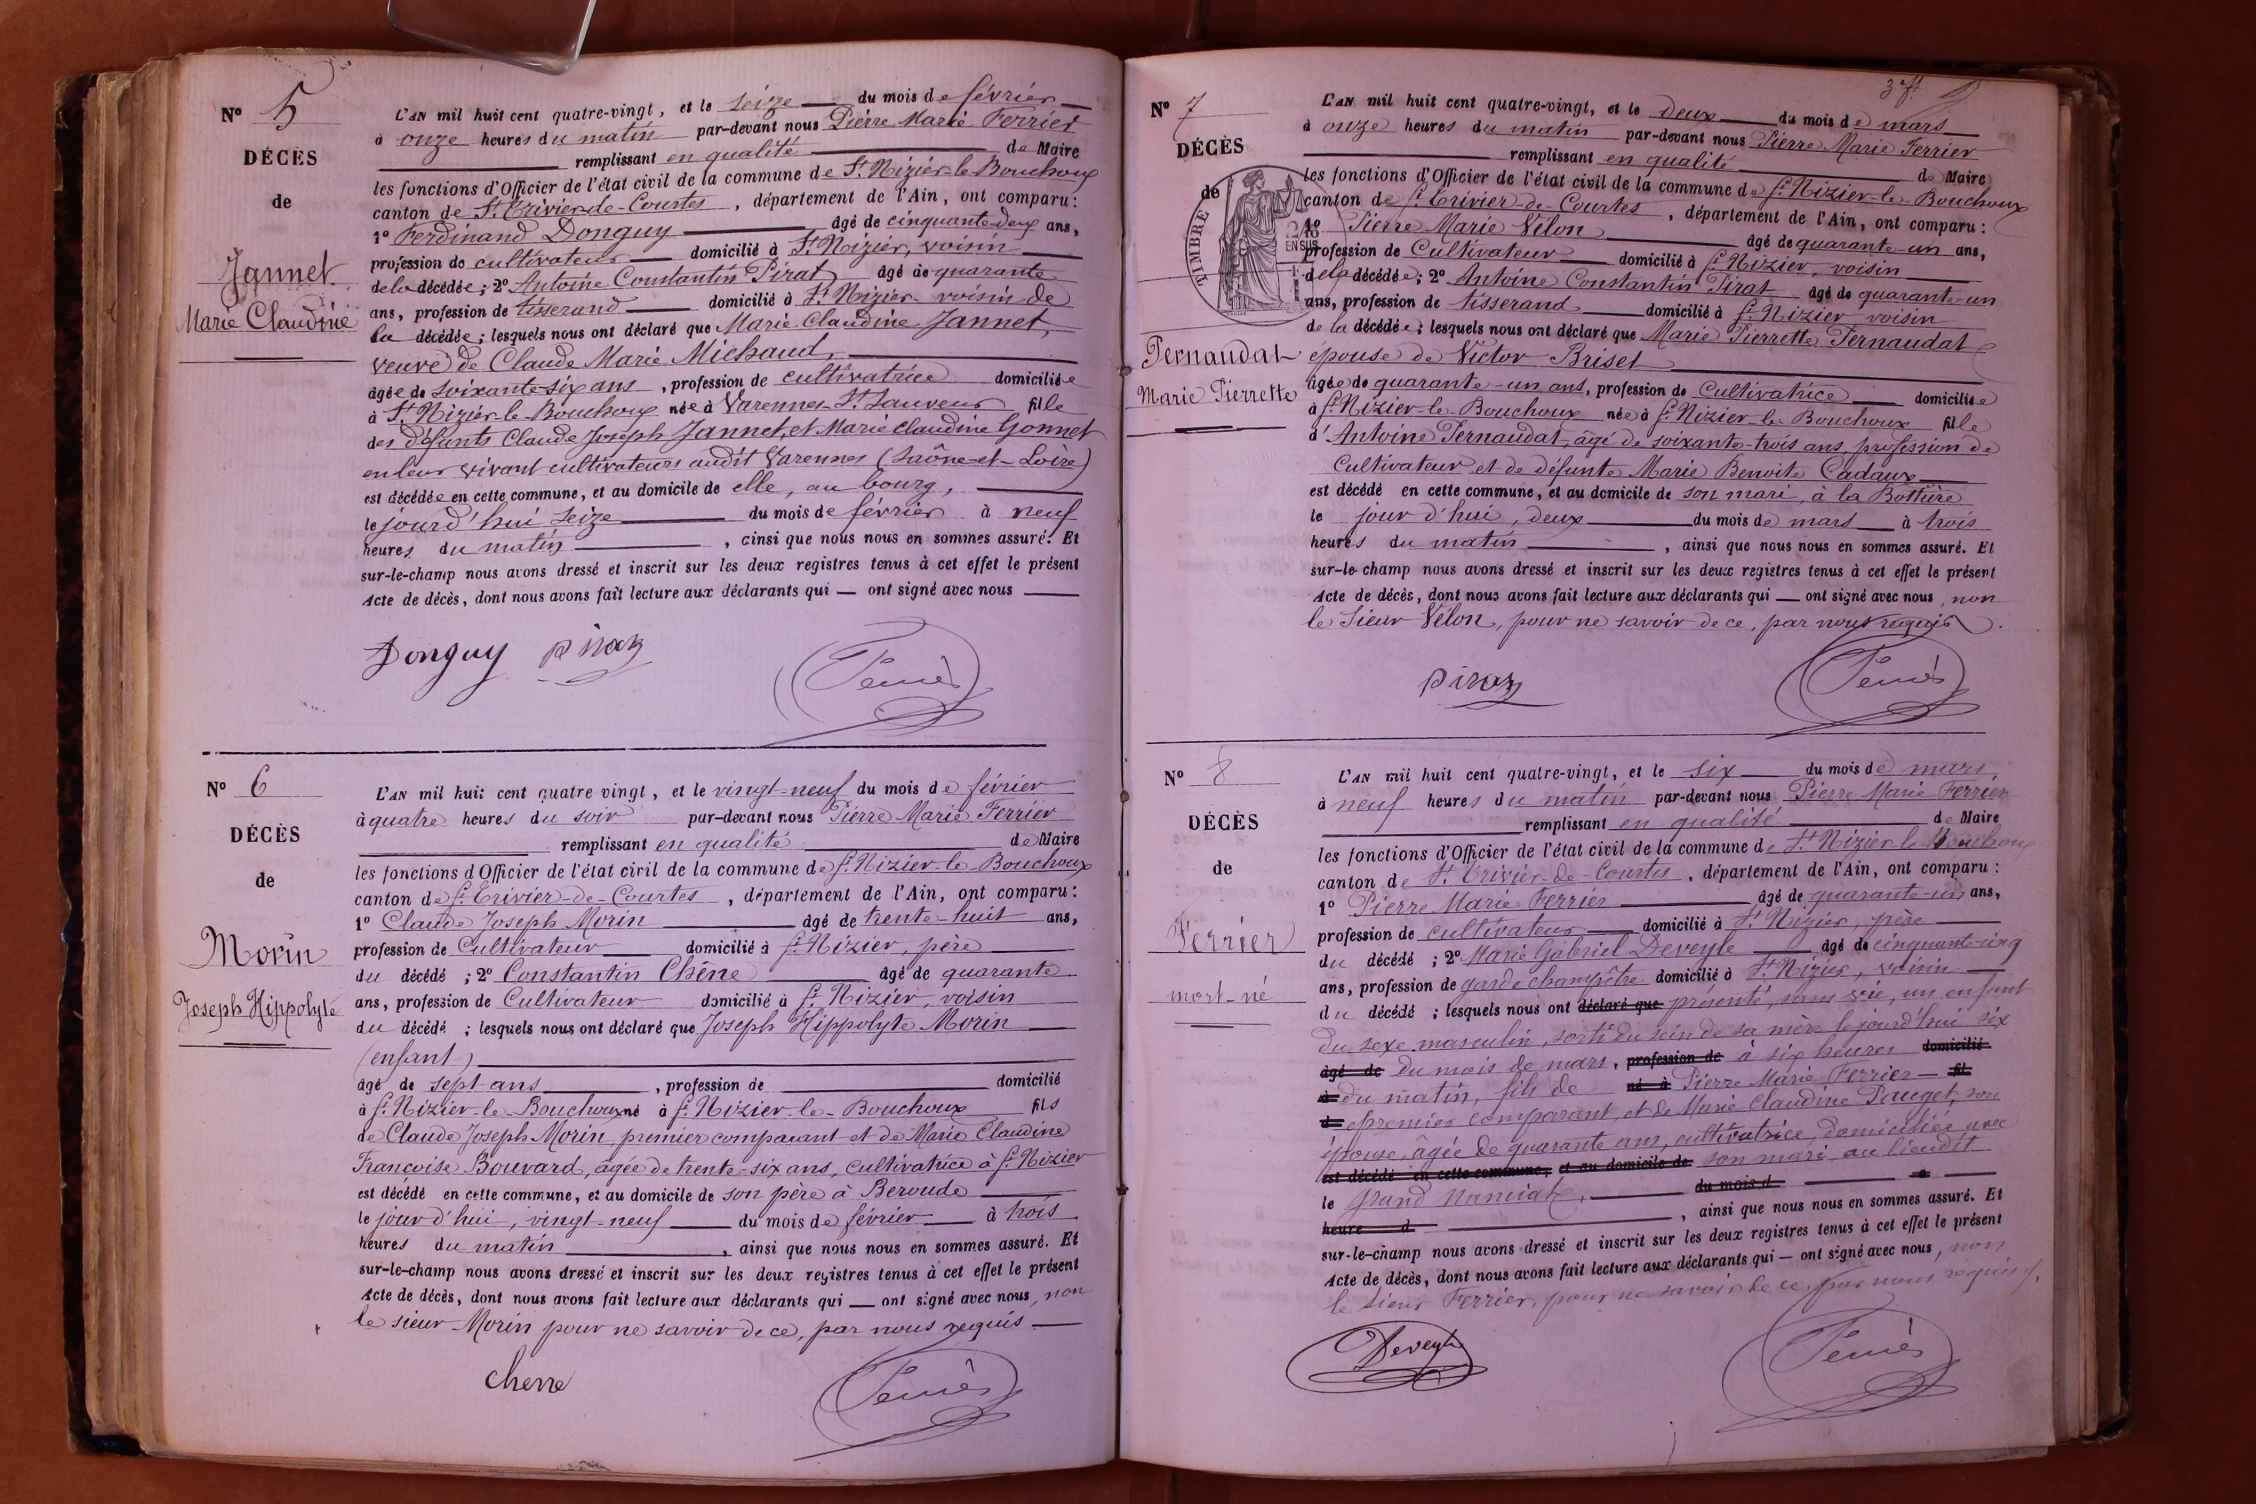 N° 5
DÉCÈS
de
Jannet
Marie Claudine
L'AN mil huit cent quatre-vingt, et le seize du mois de février
à onze heures du matin par-devant nous Pierre Marie Ferrier
remplissant en qualité de Maire
les fonctions d'Officier de l'état civil de la commune de St Nizier-le-Bouchoux
canton de St Trivier-de-Courtes, département de l'Ain, ont comparu:
1° Ferdinand Donguy âgé de cinquante-deux ans,
profession de cultivateur domicilié à St Nizier, voisin
de la décédée; 2° Antoine Constantin Pirat âgé de quarante
ans, profession de tisserand domicilié à St Nizier voisin de
la décédée; lesquels nous ont déclaré que Marie Claudine Jannet,
veuve de Claude Marie Michaud,
âgée de soixante-six ans, profession de cultivatrice domiciliée
à St Nizier-le-Bouchoux née à Varennes-St-Sauveur fille
des défunts Claude Joseph Jannet, et Marie Claudine Gonnet
en leur vivant cultivateurs audit Varennes (Saône-et-Loire)
est décédée en cette commune, et au domicile de elle, au bourg,
le jourd'hui seize du mois de février à neuf
heures du matin, ainsi que nous nous en sommes assuré. Et
sur-le-champ nous avons dressé et inscrit sur les deux registres tenus à cet effet le présent
Acte de décès, dont nous avons fait lecture aux déclarants qui — ont signé avec nous
Donguy Piraz
N° 6
DÉCÈS
de
Morin
Joseph Hippolyte
L'AN mil huit cent quatre-vingt, et le vingt-neuf du mois de février
à quatre heures du soir par-devant nous Pierre Marie Ferrier
remplissant en qualité de Maire
les fonctions d'Officier de l'état civil de la commune de St Nizier-le-Bouchoux
canton de St Trivier-de-Courtes, département de l'Ain, ont comparu:
1° Claude Joseph Morin âgé de trente-huit ans,
profession de Cultivateur domicilié à St Nizier, père
du décédé; 2° Constantin Chêne âgé de quarante
ans, profession de Cultivateur domicilié à St Nizier, voisin
du décédé; lesquels nous ont déclaré que Joseph Hippolyte Morin
(enfant)
âgé de sept ans, profession de domicilié
à St Nizier-le-Bouchoux né à St Nizier-le-Bouchoux fils
de Claude Joseph Morin premier comparant et de Marie Claudine
Françoise Bouvard, âgée de trente-six ans, Cultivatrice à St Nizier
est décédé en cette commune, et au domicile de son père à Beroude
le jour d'hui, vingt-neuf du mois de février à trois
heures du matin, ainsi que nous nous en sommes assuré. Et
sur-le-champ nous avons dressé et inscrit sur les deux registres tenus à cet effet le présent
Acte de décès, dont nous avons fait lecture aux déclarants qui — ont signé avec nous, non
le sieur Morin pour ne savoir de ce, par nous requis
Chene
N° 7
DÉCÈS
de
TIMBRE
Fernaudat
Marie Pierrette
L'AN mil huit cent quatre-vingt, et le deux du mois de mars
à onze heures du matin par-devant nous Pierre Marie Ferrier
remplissant en qualité de Maire
les fonctions d'Officier de l'état civil de la commune de St Nizier-le-Bouchoux
canton de St Trivier-de-Courtes, département de l'Ain, ont comparu:
1° Pierre Marie Vélon âgé de quarante-un ans,
profession de Cultivateur domicilié à St Nizier, voisin
de la décédée; 2° Antoine Constantin Pirat âgé de quarante-un
ans, profession de tisserand domicilié à St Nizier voisin
de la décédée; lesquels nous ont déclaré que Marie Pierrette Fernaudat
épouse de Victor Briset
âgée de quarante-un ans, profession de Cultivatrice domiciliée
à St Nizier-le-Bouchoux née à St Nizier-le-Bouchoux fille
d'Antoine Fernaudat, âgé de soixante-trois ans, profession de
Cultivateur et de défunte Marie Benoite Cadaux
est décédé en cette commune, et au domicile de son mari, à la Bottière
le jour d'hui, deux du mois de mars à trois
heures du matin, ainsi que nous nous en sommes assuré. Et
sur-le-champ nous avons dressé et inscrit sur les deux registres tenus à cet effet le présent
Acte de décès, dont nous avons fait lecture aux déclarants qui — ont signé avec nous, non
le Sieur Vélon, pour ne savoir de ce, par nous requis.
Piraz
N° 8
DÉCÈS
de
Ferrier
mort-né
L'AN mil huit cent quatre-vingt, et le six du mois de mars,
à neuf heures du matin par-devant nous Pierre Marie Ferrier
remplissant en qualité de Maire
les fonctions d'Officier de l'état civil de la commune de St Nizier le Bouchoux
canton de St Trivier-de-Courtes, département de l'Ain, ont comparu:
1° Pierre Marie Ferrier âgé de quarante-un ans,
profession de cultivateur domicilié à St Nizier, père
du décédé; 2° Marie Gabriel Deveyle âgé de cinquante-cinq
ans, profession de garde champêtre domicilié à St Nizier, voisin
du décédé; lesquels nous ont déclaré que présenté, sans vie, un enfant
du sexe masculin, sorti du sein de sa mère le jourd'hui six
âgé de du mois de mars, profession de à six heures domicilié
à du matin, fils de né à Pierre Marie Ferrier fil
d premier comparant, et de Marie Claudine Pauget, son
épouse, âgée de quarante ans, cultivatrice, domiciliée avec
est décédé en cette commune, et au domicile de son mari au lieudit
le grand du mois d à
heure d, ainsi que nous nous en sommes assuré. Et
sur-le-champ nous avons dressé et inscrit sur les deux registres tenus à cet effet le présent
Acte de décès, dont nous avons fait lecture aux déclarants qui — ont signé avec nous, non
le Sieur Ferrier, pour ne savoir de ce, par nous requis.
Deveyle